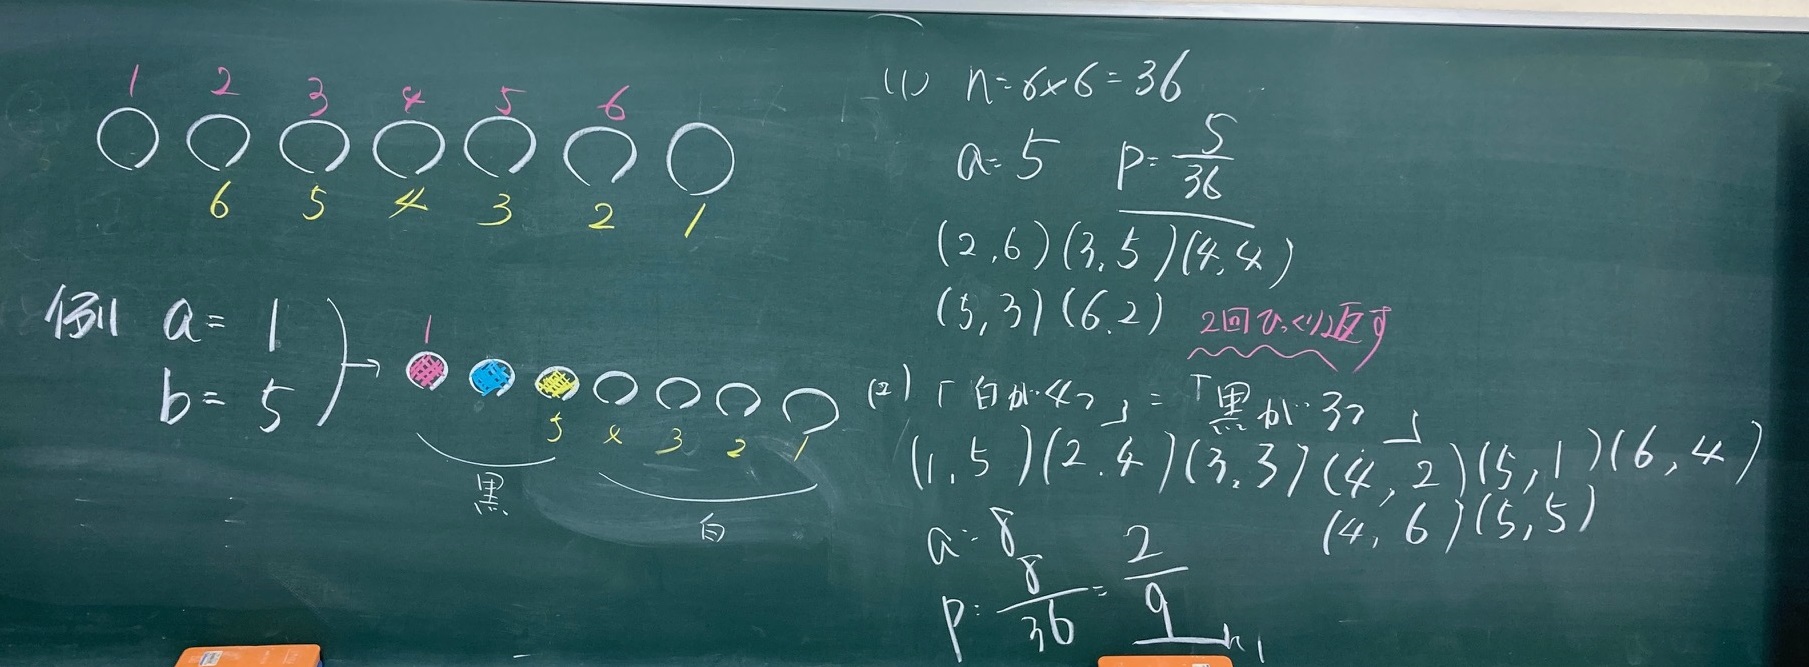 1 2 3 4 5 6
6 5 4 3 2 1
例 a = 1
b = 5
1
5 4 3 2 1
黒
白
(1) n = 6×6 = 36
a = 5 p = 5/36
(2,6)(3,5)(4,4)
(5,3)(6,2)
2回ひっくり返す
(2)「白が4つ」=「黒が3つ」
(1,5)(2,4)(3,3)(4,2)(5,1)(6,4)
(4,6)(5,5)
a = 8
p = 8/36 = 2/9